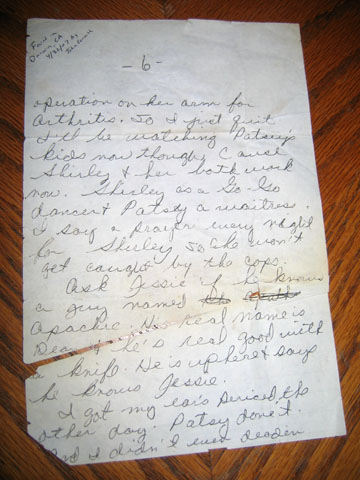 Found in
Darwin, CA
by
- 6 -
operation on her arm for
Arthritis. So I just quit
I'll be watching Patsy's
kids now though, Cause
Shirley & her both work
now. Shirley as a Go-Go
dancer & Patsy a waitress.
I say a prayer every night
for Shirley so she won't
get caught by the cops.
Ask Jessie if he knows
a guy named
Apachie. His real name is
Dean & he's real good with
a knife. He is up here & says
he knows Jessie.
I got my ears pierced the
other day. Patsy done it.
And I didn't even deaden